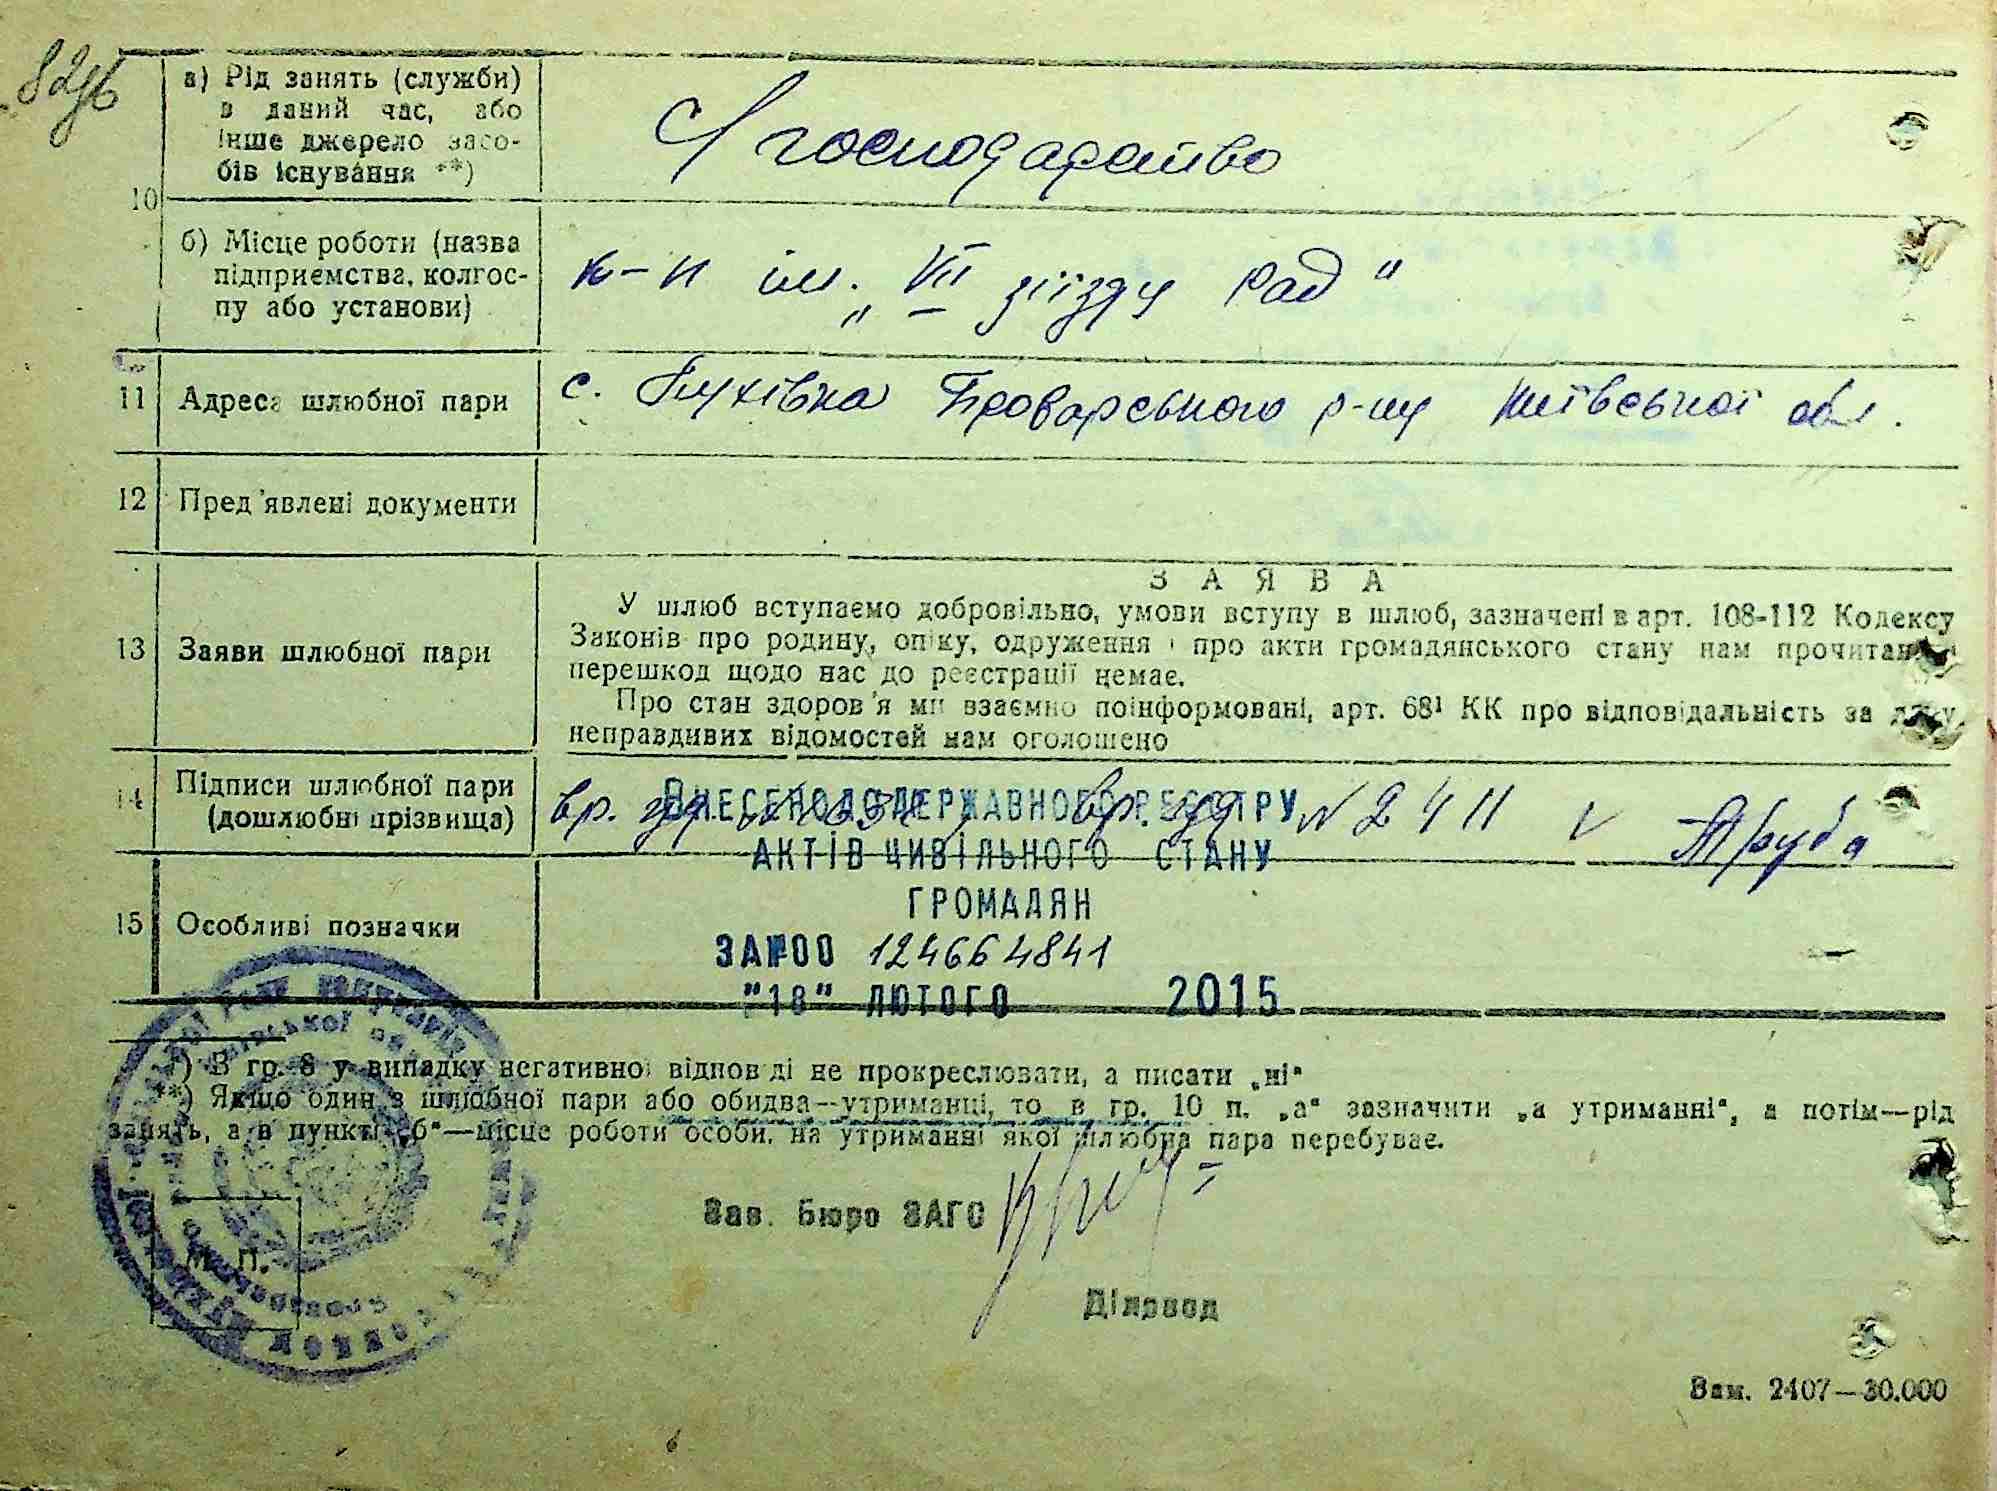 82зв
10
а) Рід занять (служби)
в даний час, або
інше джерело засо-
бів існування **)
С/господарство
б) Місце роботи (назва
підприємства, колгос-
пу або установи)
к-п ім. „VII зїізду Рад"
11 Адреса шлюбної пари
с. Пухівка Броварського р-ну Київської обл.
12 Пред'явлені документи
13 Заяви шлюбної пари
ЗАЯВА
У шлюб вступаємо добровільно, умови вступу в шлюб, зазначені в арт. 108-112 Кодексу
Законів про родину, опіку, одруження і про акти громадянського стану нам прочитан
перешкод щодо нас до реєстрації немає.
Про стан здоров'я ми взаємно поінформовані, арт. 68¹ КК про відповідальність за дачу
неправдивих відомостей нам оголошено
14 Підписи шлюбної пари
(дошлюбні прізвища)
вр. вр. № 2411 Труба
ВНЕСЕНО ДО ДЕРЖАВНОГО РЕЄСТРУ
АКТІВ ЦИВІЛЬНОГО СТАНУ
ГРОМАДЯН
ЗА №00 124664841
"18" ЛЮТОГО 2015
15 Особливі позначки
*) В гр. 8 у випадку негативної відповіді не прокреслювати, а писати „ні"
**) Якщо один з шлюбної пари або обидва—утриманці, то в гр. 10 п. „а" зазначити „а утриманні", а потім—рід
занять, а в пункті „б"—місце роботи особи, на утриманні якої шлюбна пара перебуває.
Зав. Бюро ЗАГС
М. П.
Діловод
Зам. 2407—30.000